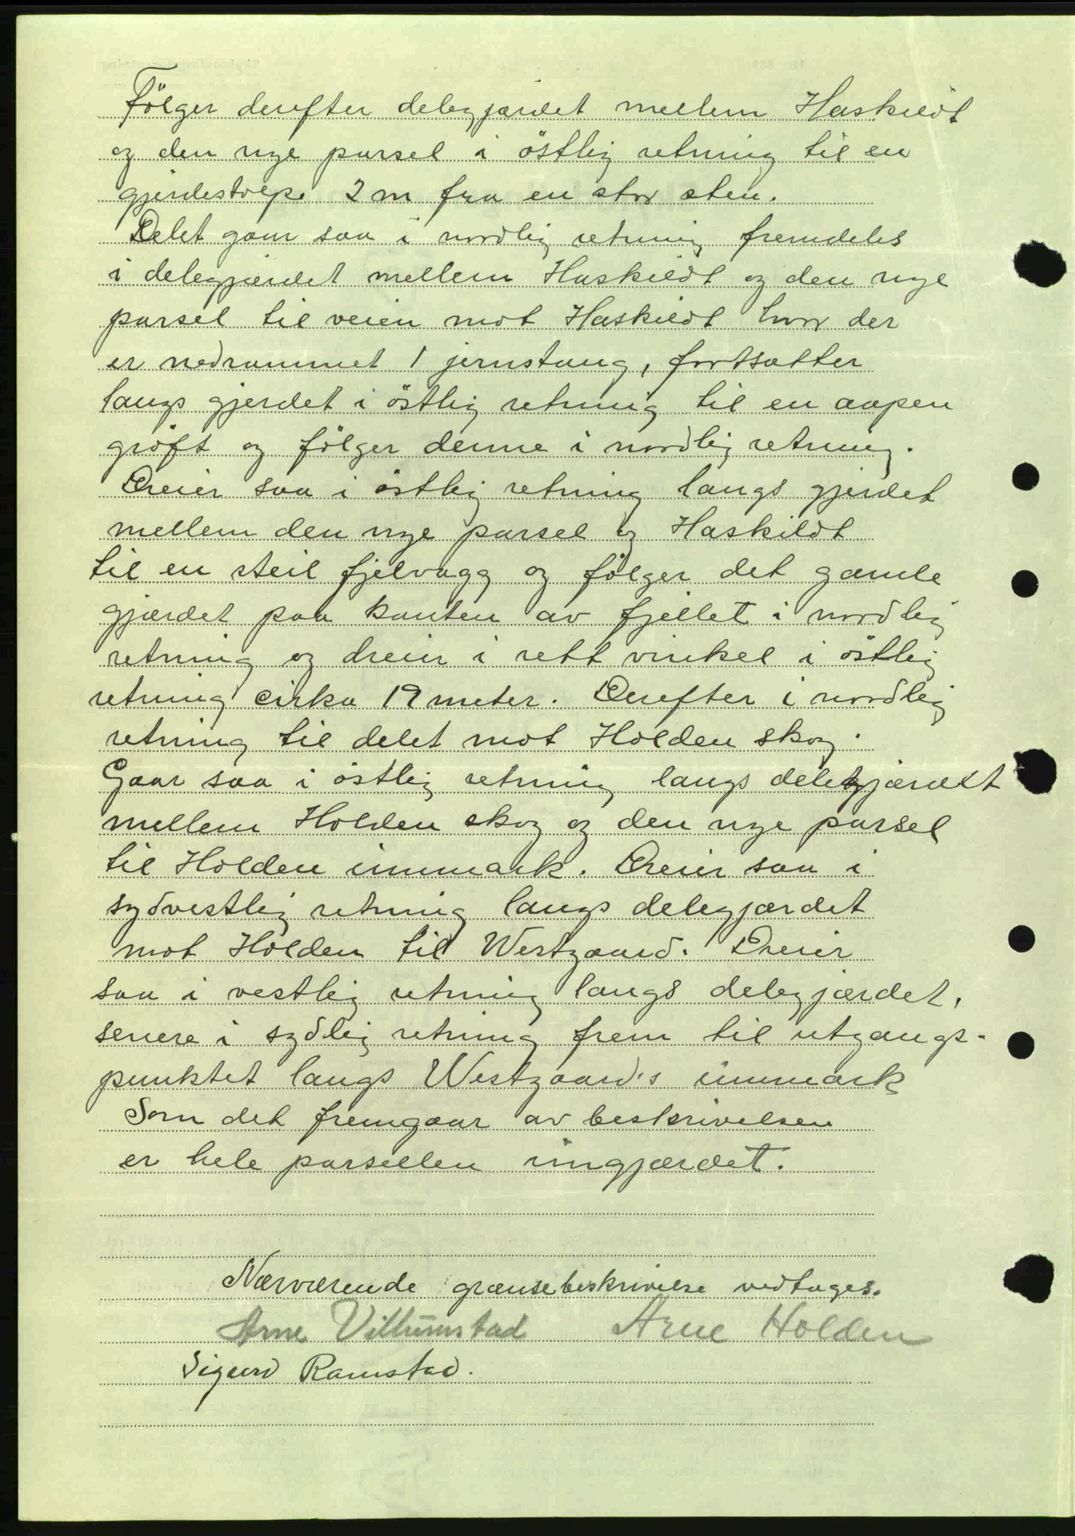 Følger derefter delegjærdet mellem Haskildt
og den nye parsel i östlig retning til en
gjerdestolpe 2 m fra en stor sten.
Delet gaar saa i nordlig retning fremdeles
i delegjærdet mellem Haskildt og den nye
parsel til veien mot Haskildt hvor der
er nedrammet 1 jernstang, fortsætter
langs gjerdet i östlig retning til en aapen
gröft og fölger denne i nordlig retning.
Dreier saa i östlig retning langs gjerdet
mellem den nye parsel og Haskildt
til en steil fjelvægg og fölger det gamle
gjærdet paa kanten av fjellet i nordlig
retning og dreier i rett vinkel i östlig
retning cirka 19 meter. Derefter i nordlig
retning til delet mot Holden skog.
Gaar saa i östlig retning langs delegjærdet
mellem Holden skog og den nye parsel
til Holden innmark. Dreier saa i
sydvestlig retning langs delegjærdet
mot Holden til Westgaard. Dreier
saa i vestlig retning langs delegjærdet,
senere i sydlig retning frem til utgangs-
punktet langs Westgaard's innmark
Som det fremgaar av beskrivelsen
er hele parsellen inngjærdet.
Nærværende grænsebeskrivelse vedtages.
Arne Vilhumstad Arne Holden
Sigurd Ramstad.